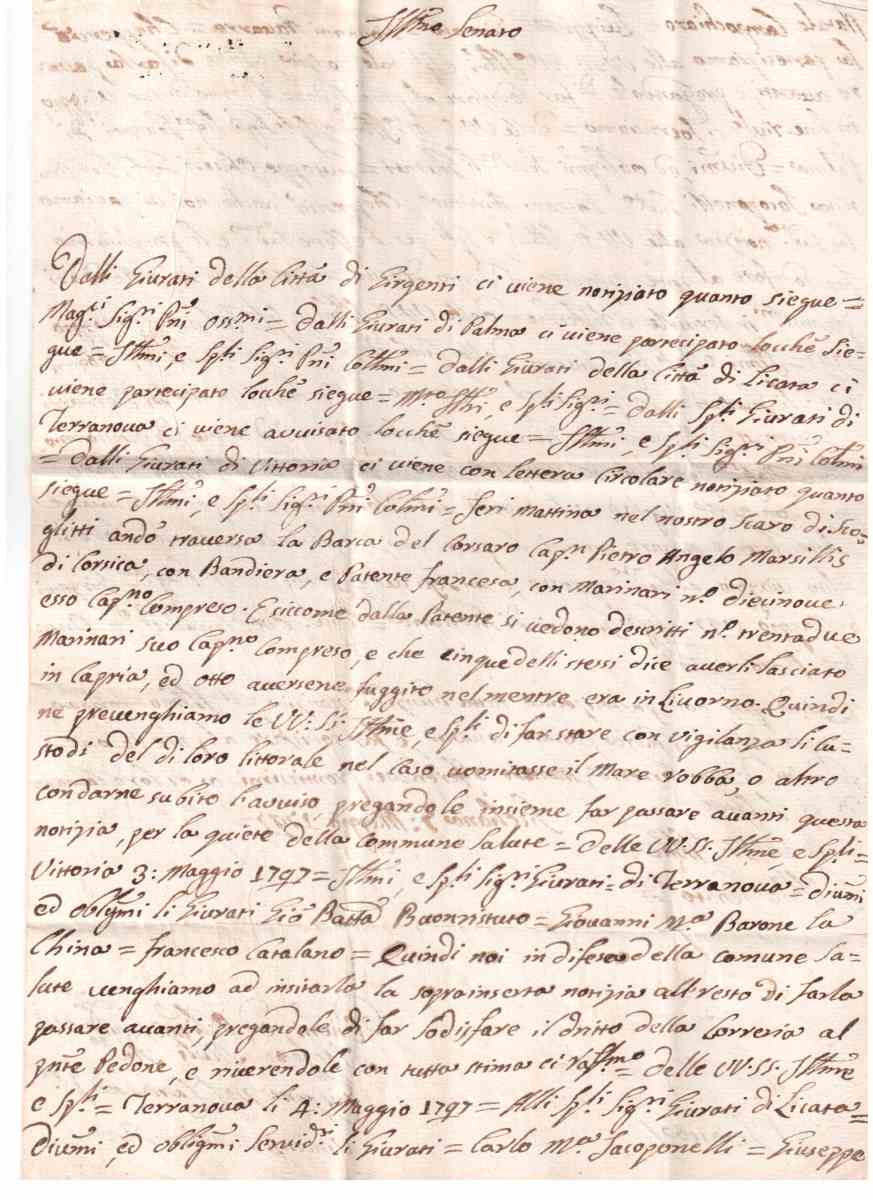 Illme Senato
Dalli Giurati della Città di Girgenti ci viene notiziato quanto siegue =
Magci Sigri Pni ossmi = dalli Giurati di Palma ci viene partecipato locchè sie=
gue = Illmi, e Spli Sigri Pni Colmi = dalli Giurati della Città di Licata ci
viene partecipato locchè siegue = Mto Illri, e Spli Sigri = dalli Spli Giurati di
Terranova ci viene avvisato locchè siegue = Illmi, e Spli Sigri Pni Colmi
= dalli Giurati di Vittoria ci viene con lettera Circolare notiziato quanto
siegue = Illmi, e Spli Sigri Pni Colmi = Jeri mattina nel nostro Scaro di Sco=
glitti andò traversa la Barca del Corsaro Capn Pietro Angelo Marsillis
di Corsica, con Bandiera, e Patente francesa, con Marinari no diecinove
esso Capno Compreso. E siccome dalla Patente si vedono descritti no trentadue
Marinari suo Capno Compreso, e che cinque delli stessi dice averli lasciato
in Capria, ed otto aversene fuggito nel mentre era in Livorno. Quindi
ne prevenghiamo le VV. SS. Illme, e Spli di far stare con vigilanza li Cu=
stodi del di loro littorale nel caso vomitasse il Mare robba, o altro
con darne subito l'avviso, pregandole insieme far passare avanti questa
notizia, per la quiete della commune Salute = delle VV. SS. Illme, e Spli =
Vittoria 3: Maggio 1797 = Illmi, e Spli Sigri Giurati = di Terranova = divmi
ed oblgmi li Giurati Gio Batta Buonristuto = Giovanni Ma Barone la
China = francesco Catalano = Quindi noi in difesa della comune Sa=
lute venghiamo ad insitarla la soprainserta notizia all'resto di farla
passare avanti, pregandole di far sodisfare il dritto della Correria al
pnte Pedone, e riverendole con tutta stima ci raffmo delle VV. SS. Illme
e Spli = Terranova li 4: Maggio 1797 = Alli Spli Sigri Giurati di Licata =
divmi, ed obligmi Servidri li Giurati = Carlo Ma Jacoponelli = Giuseppe